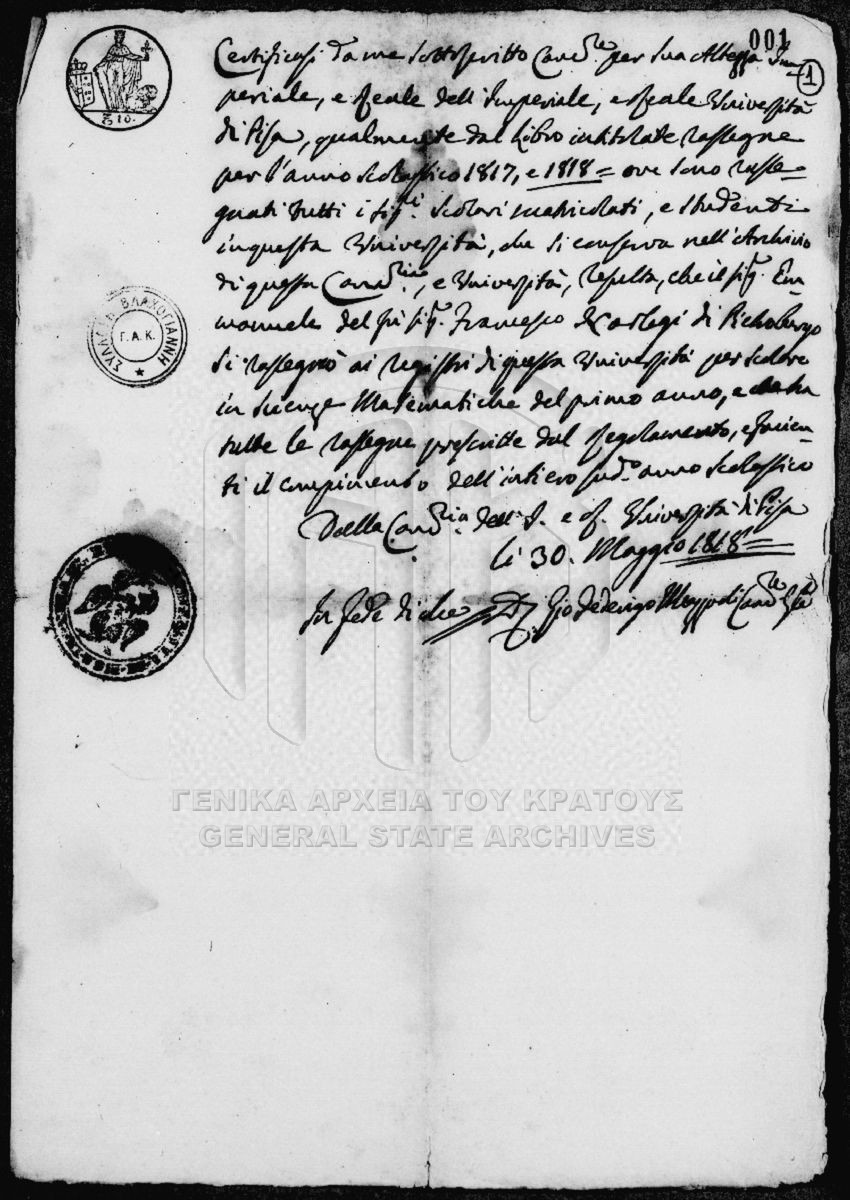 001
1
Certificasi da me Sottoscritto Canc.re per Sua Altezza Im-
periale, e Reale dell'Imperiale, e Reale Università
di Pisa, qualmente dal Libro intitolato rassegne
per l'anno Scolastico 1817, e 1818 = ove sono rasse-
gnati tutti i Sigri. Scolari matricolati, e studenti
in questa Università, che si conserva nell'Archivio
di questa Canc.ria, e Università, resulta, che il Sig. Em-
manuele del Sig. Francesco di
si rassegnò ai registri di questa Università per scolare
in scienze Matematiche del primo anno, e
tutte le rassegne prescritte dal regolamento, e facien-
ti il compimento dell'intiero sud.o anno Scolastico
Dalla Canc.ria dell'I. e R. Università di Pisa
li 30. Maggio 1818 =
In fede di che Gio Federigo Canc.re
10.
ΣΥΛΛΟΓΗ ΒΛΑΧΟΓΙΑΝΝΗ
Γ.Α.Κ.
ΓΕΝΙΚΑ ΑΡΧΕΙΑ ΤΟΥ ΚΡΑΤΟΥΣ
GENERAL STATE ARCHIVES